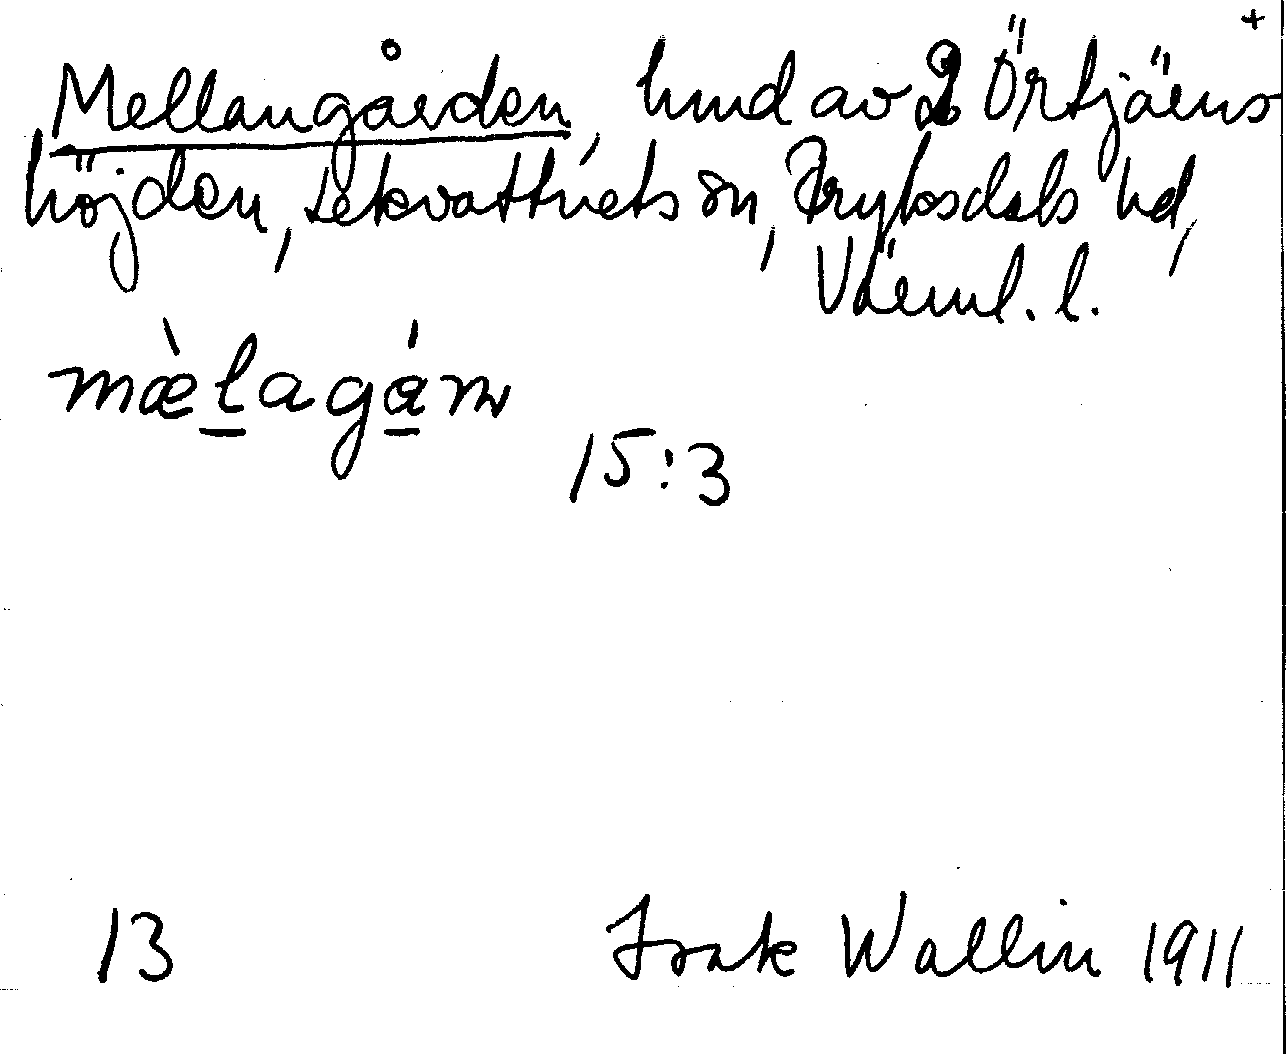 +
Mellangården, hmd av 2 Örtjärns
höjden, Lekvattnets sn, Fryksdals hd,
Värml. l.
mæ̀ḻagá̱rn
15:3
13
Isak Wallin 1911